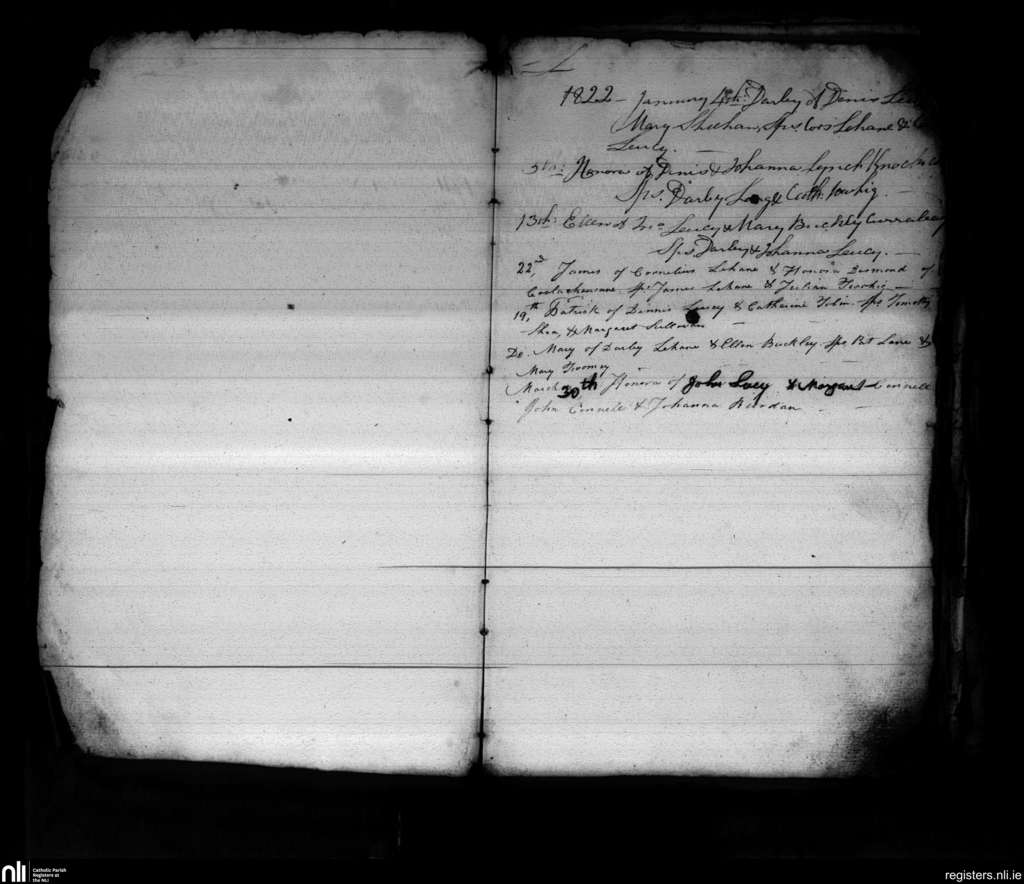 L
1822 - January 4th. Darley of Denis
Mary Sheehan, Sps. Cors Lehane &
Leucy.
5th: Honora of Denis & Johanna Lynch
Sps. Darby & Cath.
13th. Ellen of Jno. Leucy & Mary Buckley
Sps Darby & Johanna Leucy.
22d, James of Cornelius Lehane & Honora Desmond of
Sps James Lehane & Julian Twohig
19th, Patrick of Dinnis Leucy & Catherine Tobin Sps Timothy
Shea, & Margaret Sullovan
Do. Mary of Darby Lehane & Ellen Buckley Sps Pat Lane &
Mary Twomey
March 30th Honora of John Lucy & Margaret Connell
John Connell & Johanna Riordan
nli
Catholic Parish
Registers at
the NLI
registers.nli.ie